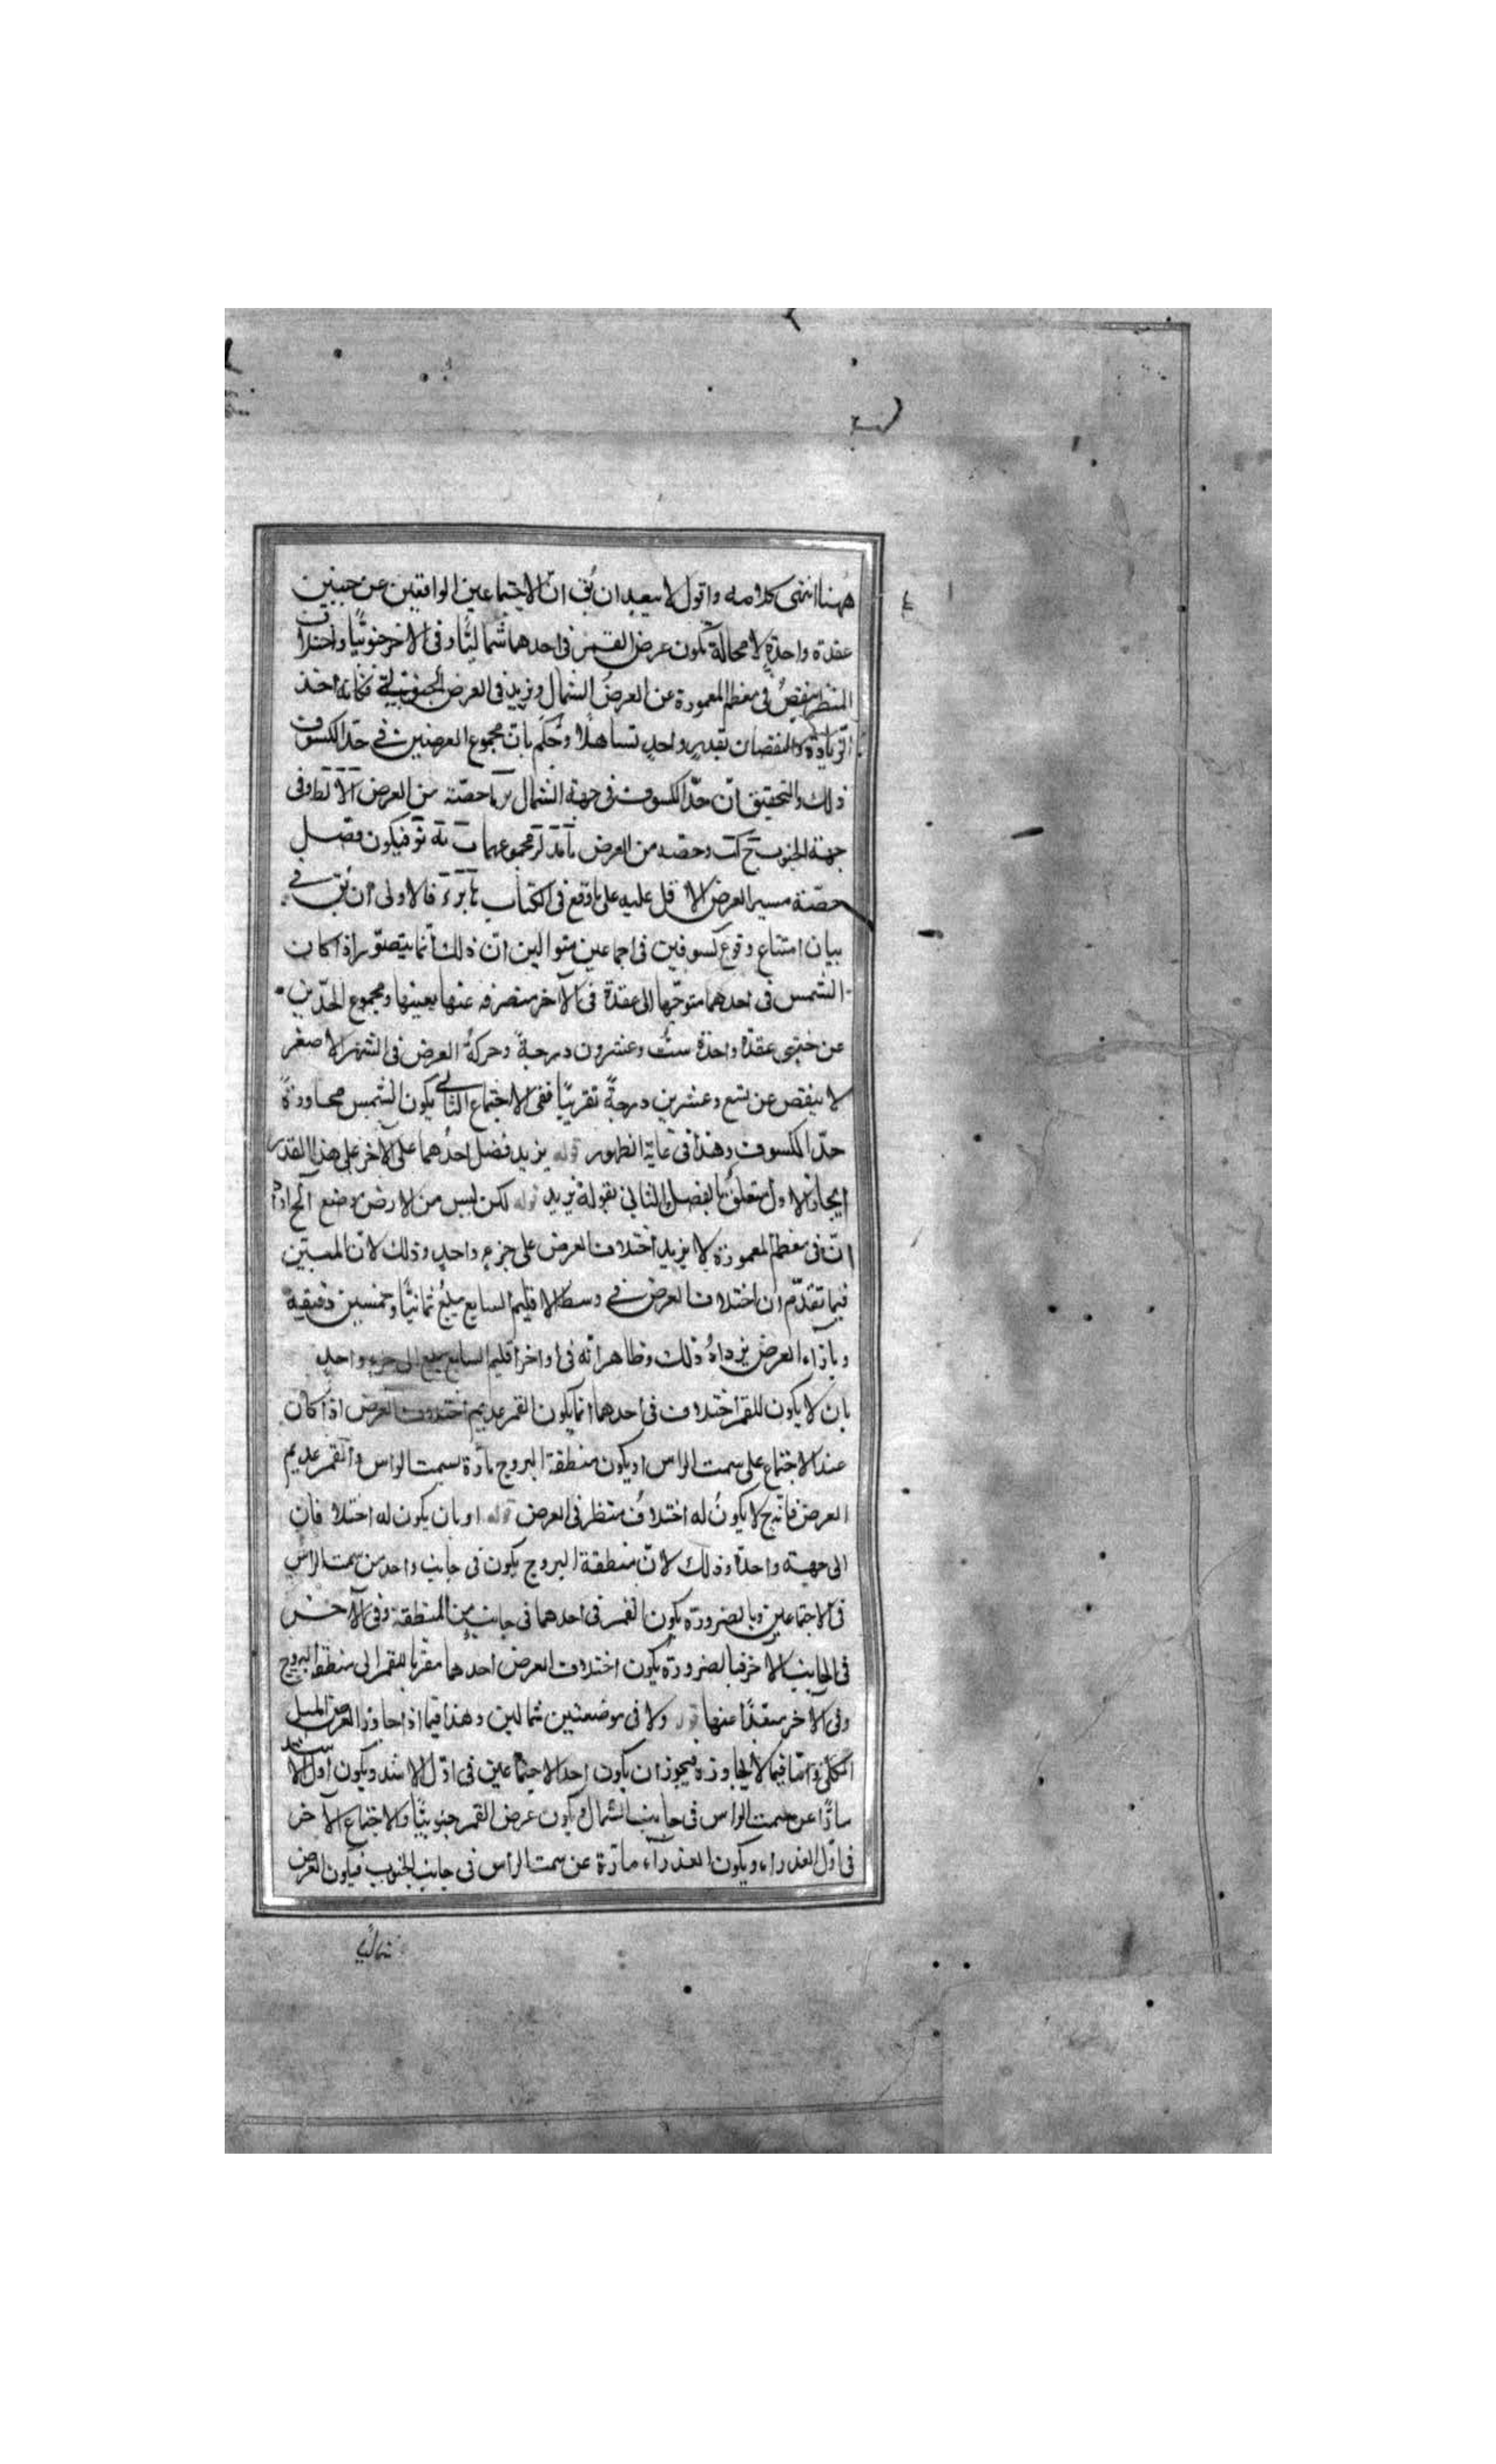 ههنا انتهى كلامه واقول لا يبعد ان يق ان الاجتماعين الواقعين عن جنبتين
عقدة واحدة لا محالة يكون عرض القمر فى احدهما شماليًا وفى الاخر جنوبيًا واختلاف
المنظر ينقص فى معظم المعمورة عن العرض الشمالى ويزيد فى العرض الجنوبى فكانه اخذ
الزيادة والنقصان بقدر واحد تساهلًا وحكم بان مجموع العرضين فى حدّ الكسوف
ذلك والتحقيق انّ حدّ الكسوف فى جهة الشمال حصّته من العرض وفى
جهة الجنوب وحصته من العرض مجموعهما فيكون فضل
حصّة مسير العرض الاقل عليه على ما وقع فى الكتاب فالاولى ان يق فى
بيان امتناع وقوع كسوفين فى اجماعين متواليين انّ ذلك انّما يتصوّر اذا كان
الشمس فى احدهما متوجّها الى عقدة فى الآخر منصرفه عنها بعينها ومجموع الحدّين
عن جنبتى عقدة واحدة ستّ وعشرون درجةً وحركة العرض فى الشهر الاصغر
لا ينقص عن تسع وعشرين درجةً تقريبًا ففى الاجتماع الثانى يكون الشمس مجاوزةً
حدّ الكسوف وهذا فى غاية الظهور قوله يزيد فضل احدهما على الآخر على هذا القدر
الجار الاول متعلق بالفضل والثانى بقوله يزيد قوله لكن ليس من الارض موضع الخ اراد
انّ فى معظم المعمورة لا يزيد اختلاف العرض على جزء واحد وذلك لانّ المبيّن
فيما تقدّم ان اختلاف العرض فى وسط الاقليم السابع يبلغ ثمانيًا وخمسين دقيقة
وبازاء العرض يزداد ذلك وظاهر انّه فى اواخر اقليم السابع يبلغ الى جزء واحد
بان لا يكون للقمر اختلاف فى احدهما انما يكون القمر عديم اختلاف العرض اذا كان
عند الاجتماع على سمت الراس او يكون منطقة البروج مارّة بسمت الراس والقمر عديم
العرض فانّه ح لا يكونُ له اختلافُ منظر فى العرض قوله او بان يكون له اختلافان
الى جهة واحدة وذلك لانّ منطقة البروج يكون فى جانب واحد من سمت الراس
فى الاجتماعين وبالضرورة يكون القمر فى احدهما فى جانب من المنطقة وفى الآخر
فى الجانب الآخر فبالضرورة يكون اختلاف العرض احدهما مقربا للقمر الى منطقة البروج
وفى الآخر مبعّدًا عنها قوله ولا فى موضعين شماليين وهذا فيما اذا جاوز العرض الميل
الكلّى وامّا فيما لا يجاوزه فيجوز ان يكون احد الاجتماعين فى اوّل الاسد ويكون اول الاسد
مارًّا عن سمت الراس فى جانب الشمال ويكون عرض القمر جنوبيًّا والاجتماع الآخر
فى اوّل العذراء ويكون العذراء مارّة عن سمت الراس فى جانب الجنوب فيكون العرض
شماليًّا